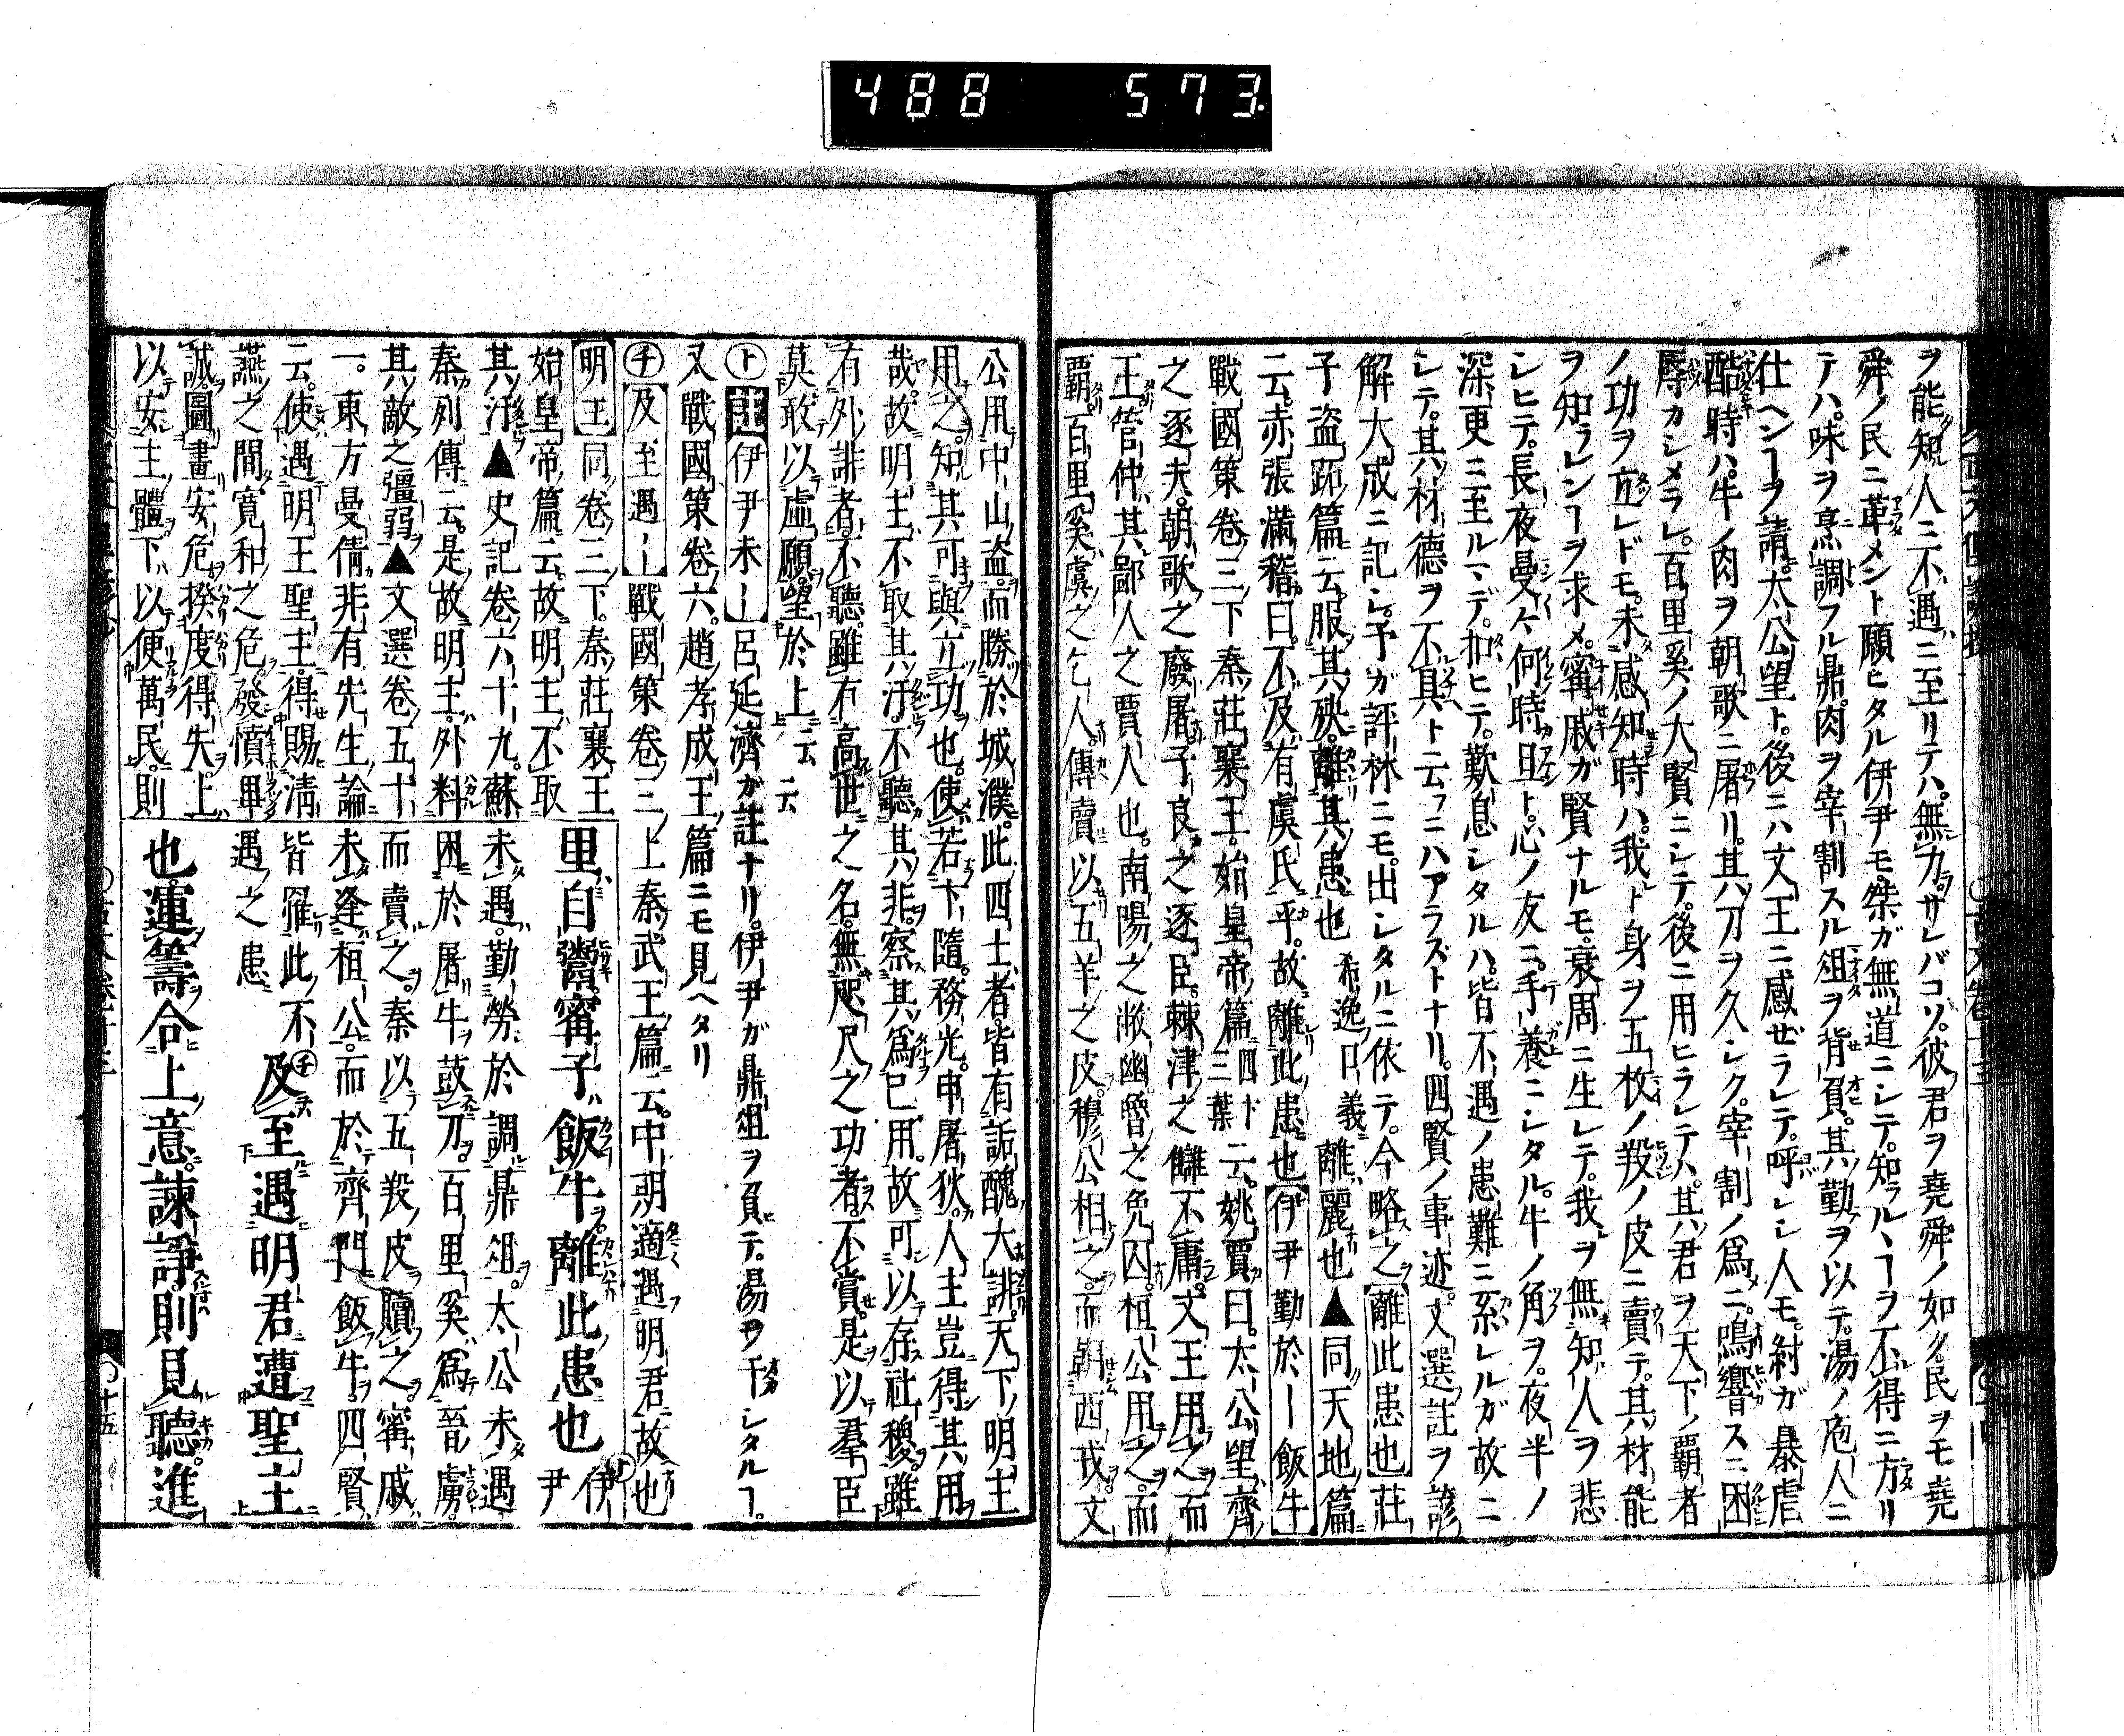 488 573
ヲ能知人ニ不遇ニ至リテハ無力サレバコソ彼君ヲ堯舜ノ如ク民ヲモ堯
舜ノ民ニ革メント願ヒタル伊尹モ桀ガ無道ニシテ知ラルヽヿヲ不得ニ方リ
テハ味ヲ烹調フル鼎肉ヲ宰割スル俎ヲ背負其勤ヲ以テ湯ノ庖人ニ
仕ヘンヿヲ請太公望ト後ニハ文王ニ感ゼラレテ呼レシ人モ紂ガ暴虐
酷時ハ牛ノ肉ヲ朝歌ニ屠リ其刀ヲ久シク宰割ノ爲ニ鳴響スニ困
辱カシメラレ百里奚ノ大賢ニシテ後ニ用ヒラレテハ其君ヲ天下ノ覇者
ノ功ヲ立レドモ未感知時ハ我ト身ヲ五枚ノ羖ノ皮ニ賣テ其材能
ヲ知ラレンヿヲ求メ甯戚ガ賢ナルモ衰周ニ生レテ我ヲ無知人ヲ悲
シヒテ長夜曼々何時旦ト心ノ友ニ手養ニシタル牛ノ角ヲ夜半ノ
深更ニ至ルマデ扣ヒテ歎息シタルハ皆不遇ノ患難ニ系レルガ故ニ
シテ其材德ヲ不具ト云フニハアラズトナリ四賢ノ事迹文選註ヲ諺
解大成ニ記シ予ガ評林ニモ出シタルニ依テ今略之離此患也莊
子盜跖篇云服其殃離其患也 希逸口義 離麗也▲同天地篇
云赤張滿稽曰不及有虞氏乎故離此患也伊尹勤於ー飯牛
戰國策卷三下秦莊襄王始皇帝篇四十三葉云姚賈曰太公望齊
之逐夫朝歌之廢屠子良之逐臣棘津之讎不庸文王用之而
王管仲其鄙人之賈人也南陽之敝幽魯之免囚桓公用之而
覇百里奚虞之乞人傳賣以五羊之皮穆公相之而朝西戎文
公用中山盜而勝於城濮此四士者皆有詬醜大誹天下明主
用之知其可與立功也使若卞隨務光申屠狄人主豈得其用
哉故明主不取其汙不聽其非察其爲已用故可以存社稷雖
有外誹者不聽雖有高世之名無咫尺之功者不賞是以羣臣
莫敢以虛願望於上云云
ト註伊尹未ー呂延濟ガ註ナリ伊尹ガ鼎俎ヲ負テ湯ヲ干シタルヿ
又戰國策卷六趙孝成王篇ニモ見ヘタリ
チ及至遇ー戰國策卷三上秦武王篇云中期適遇明君故也
明王同卷三下秦莊襄王
始皇帝篇云故明主不取
其汙▲史記卷六十九蘇
秦列傳云是故明主外料
其敵之彊弱▲文選卷五十
一東方曼倩非有先生論
云使遇明王聖主得賜淸
燕之間寬和之危發憤畢
誠圖畫安危揆度得失上
以安主體下以便萬民則
里自鬻甯子飯牛離此患也ト伊尹
未遇勤勞於調鼎俎太公未遇
困於屠牛鼓刀百里奚爲晉虜
而賣之秦以五羖皮贖之甯戚
未逢桓公而於齊門飯牛四賢
皆罹此不遇之患 チ及至遇明君遭聖主
也運籌合上意諫諍則見聽進
十五